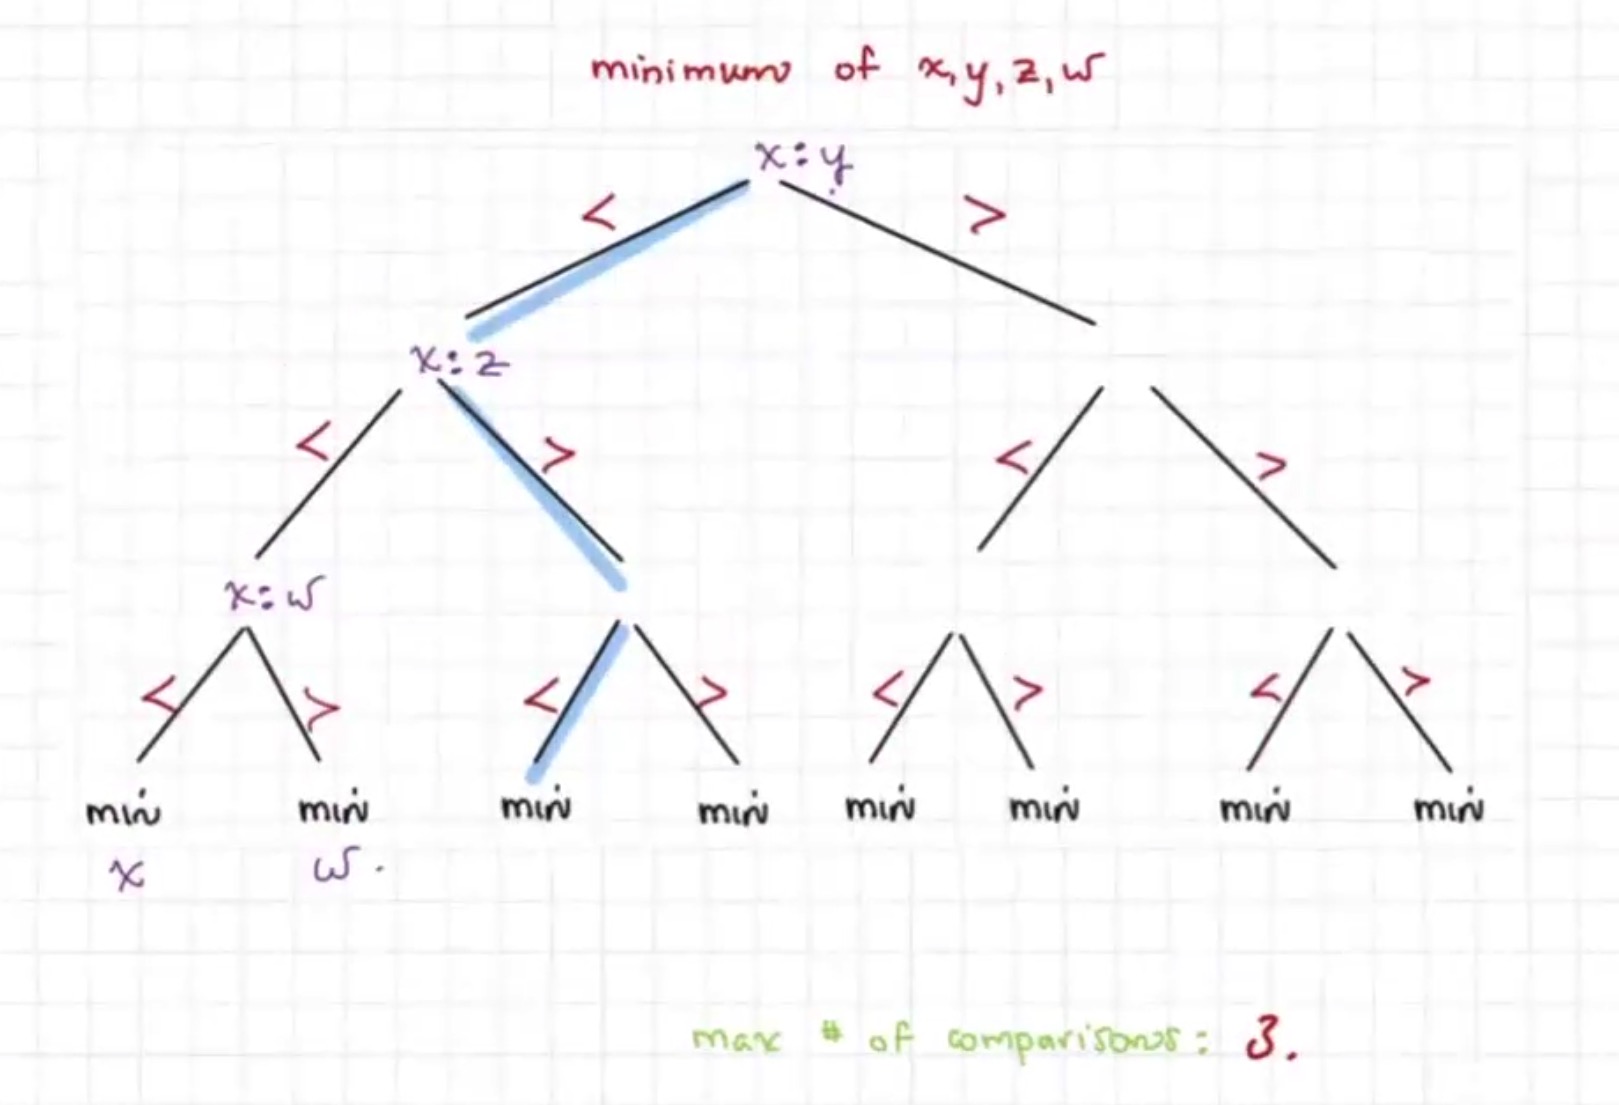 minimum of x, y, z, w
x : y
< >
x : z
< > < >
x : w
< > < > < > < >
min min min min min min min min
x w.
max # of comparisons: 3.